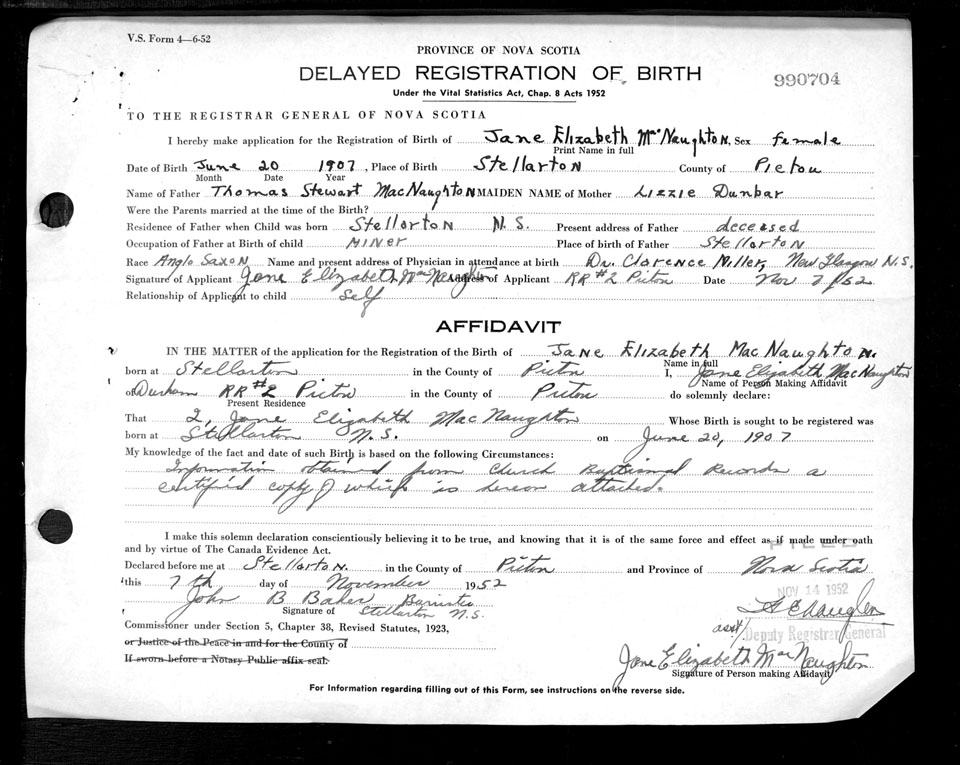 V.S. Form 4—6-52
PROVINCE OF NOVA SCOTIA
DELAYED REGISTRATION OF BIRTH
990704
Under the Vital Statistics Act, Chap. 8 Acts 1952
TO THE REGISTRAR GENERAL OF NOVA SCOTIA
I hereby make application for the Registration of Birth of Jane Elizabeth MacNaughton, Sex female
Print Name in full
Date of Birth June 20 1907, Place of Birth Stellarton County of Pictou
Month Date Year
Name of Father Thomas Stewart MacNaughton MAIDEN NAME of Mother Lizzie Dunbar
Were the Parents married at the time of the Birth?
Residence of Father when Child was born Stellarton N.S. Present address of Father deceased
Occupation of Father at Birth of child Miner Place of birth of Father Stellarton
Race Anglo Saxon Name and present address of Physician in attendance at birth Dr. Clarence Miller, New Glasgow N.S.
Signature of Applicant Jane Elizabeth MacNaughton Address of Applicant RR #2 Pictou Date Nov 7/52
Relationship of Applicant to child Self
AFFIDAVIT
IN THE MATTER of the application for the Registration of the Birth of Jane Elizabeth MacNaughton.
Name in full
born at Stellarton in the County of Pictou I, Jane Elizabeth MacNaughton
Name of Person Making Affidavit
of Durham RR #2 Pictou in the County of Pictou do solemnly declare:
Present Residence
That I, Jane Elizabeth MacNaughton Whose Birth is sought to be registered was
born at Stellarton N.S. on June 20, 1907
My knowledge of the fact and date of such Birth is based on the following Circumstances:
Information obtained from Church Baptismal Records a
certified copy of which is hereon attached.
I make this solemn declaration conscientiously believing it to be true, and knowing that it is of the same force and effect as if made under oath
and by virtue of The Canada Evidence Act.
FILED
Declared before me at Stellarton. in the County of Pictou and Province of Nova Scotia
this 7th day of November 1952
NOV 14 1952
John B Baker Barrister
Signature of Stellarton N.S.
Commissioner under Section 5, Chapter 38, Revised Statutes, 1923,
asst/ Deputy Registrar General
or Justice of the Peace in and for the County of
If sworn before a Notary Public affix seal.
Jane Elizabeth MacNaughton
Signature of Person making Affidavit
For Information regarding filling out of this Form, see instructions on the reverse side.